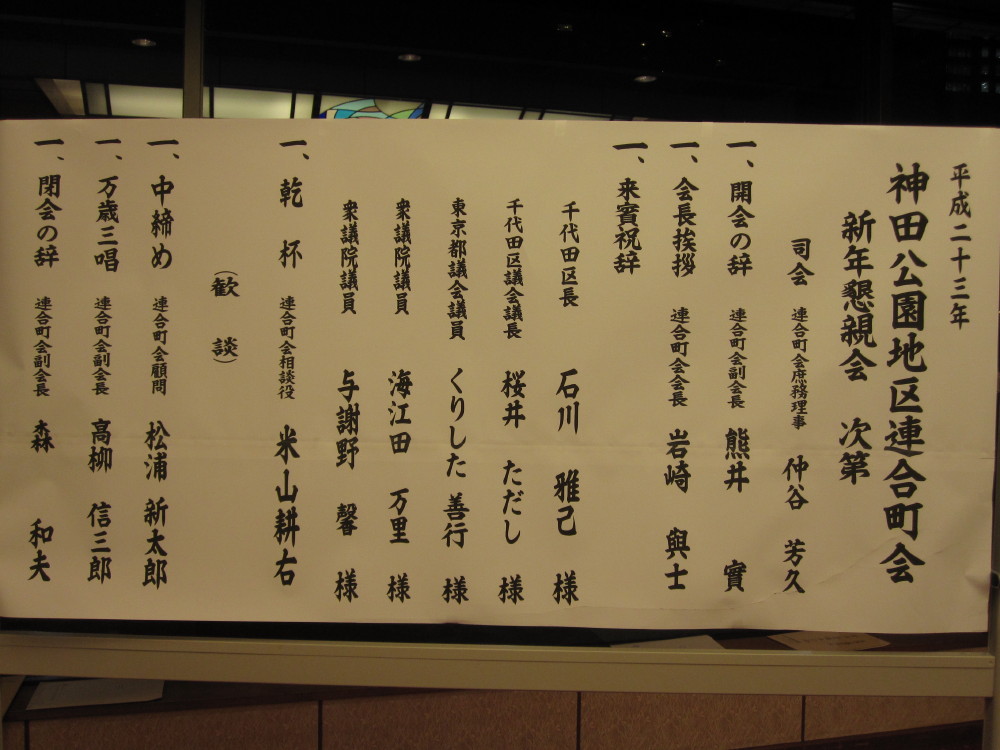 平成二十三年
神田公園地区連合町会
新年懇親会 次第
司会 連合町会庶務理事 仲谷 芳久
一、開会の辞 連合町会副会長 熊井 實
一、会長挨拶 連合町会会長 岩崎 與士
一、来賓祝辞
千代田区長 石川 雅己 様
千代田区議会議長 桜井 ただし 様
東京都議会議員 くりした 善行 様
衆議院議員 海江田 万里 様
衆議院議員 与謝野 馨 様
一、乾杯 連合町会相談役 米山耕右
（歓 談）
一、中締め 連合町会顧問 松浦 新太郎
一、万歳三唱 連合町会副会長 高柳 信三郎
一、閉会の辞 連合町会副会長 森 和夫